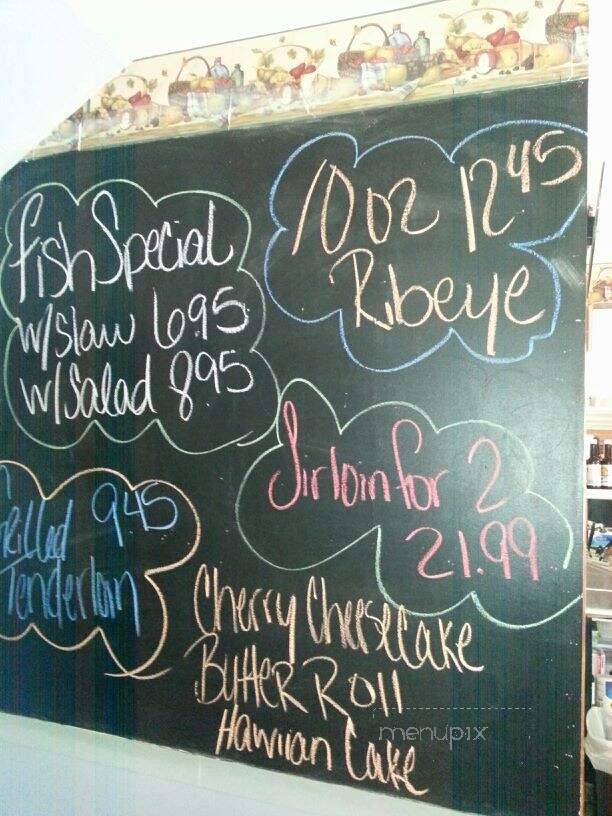 Fish Special
w/slaw 6.95
w/Salad 8.95
10 oz 12 45
Ribeye
Grilled 9.45
Tenderloin
Sirloin for 2
21.99
Cherry Cheesecake
Butter Roll
Hawiian Cake
menupix